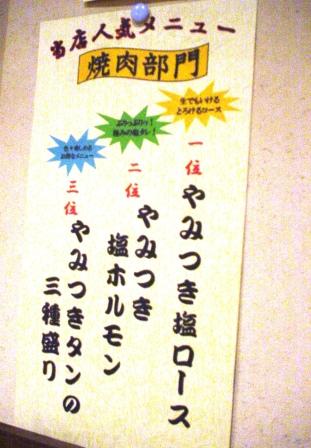 当店人気メニュー
焼肉部門
生でもいける
とろけるロース
一位
やみつき塩ロース
ぷりっぷりッ!
極みの塩タレ!
二位
やみつき
塩ホルモン
色々楽しめる
お得なメニュー
三位
やみつきタンの
三種盛り